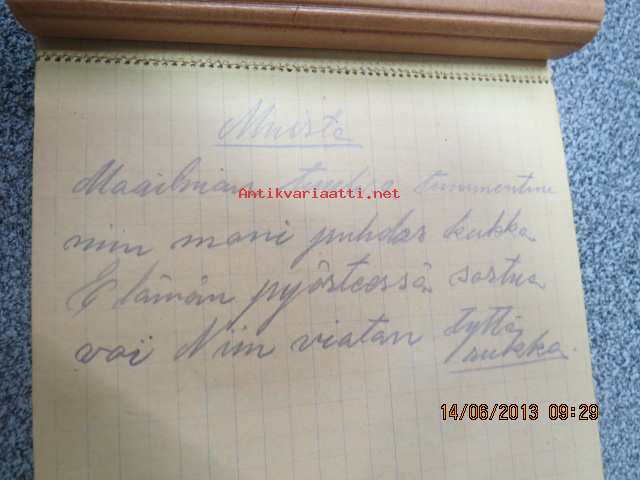 Muista
Maailman tummentuu
Antikvariaatti.net
niin moni puhdas kukka
Elämän pyörteessä sortua
voi Niin viatan tyttö
rukka.
14/06/2013 09:29